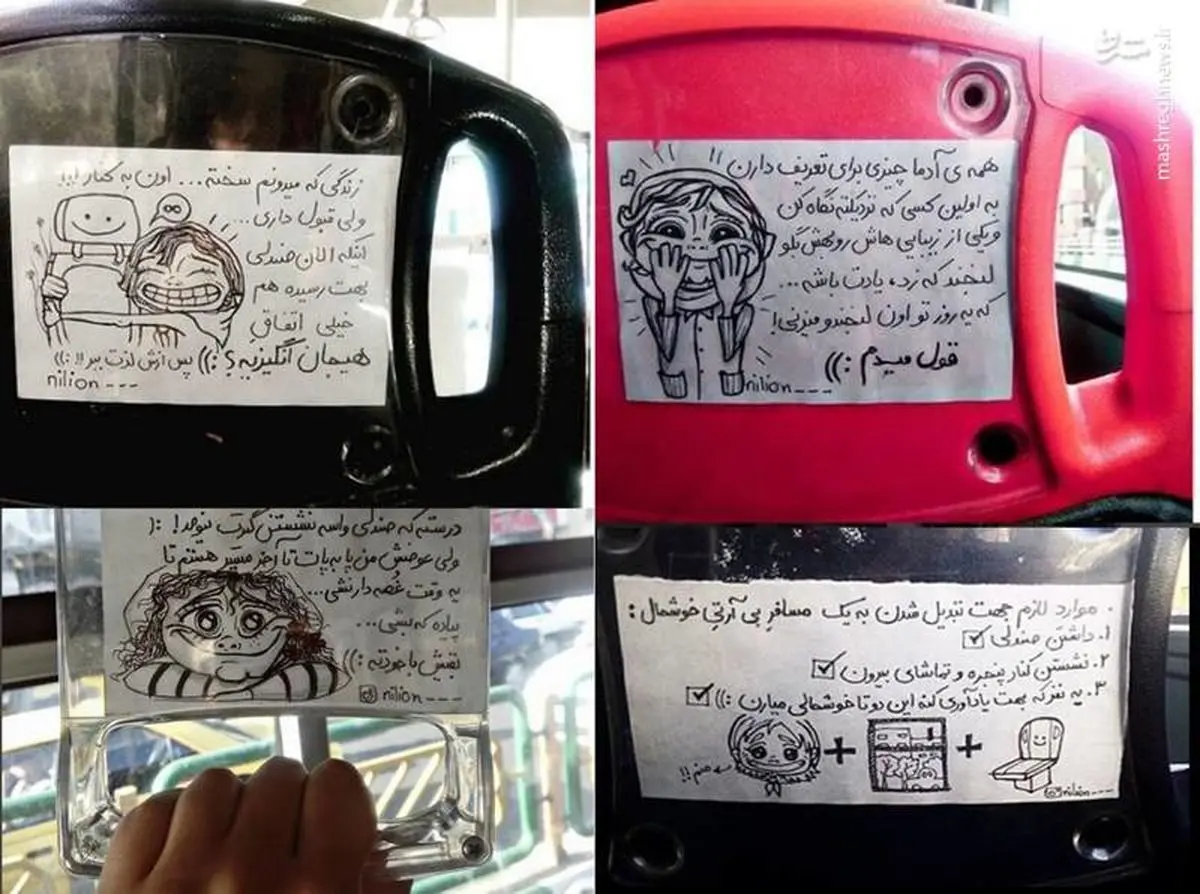 زندگی که میدونم سخته... اون به کنار!!!
ولی قبول داری...
اینکه الان صندلی
بهت رسیده هم
خیلی اتفاقِ
هیجان انگیزیه؟ :)) پس ازش لذت ببر!! :))
nilion ---
همه ی آدما چیزی برای تعریف دارن
به اولین کسی که نزدیکته نگاه کن
و یکی از زیبایی هاش رو بهش بگو
لبخند که زد، یادت باشه...
که یه روز تو اون لبخندو میزنی!
قول میدم :))
nilion ---
درسته که صندلی واسه نشستن گیرت نیومد! :(
ولی عوضش من پا به پات تا آخر مسیر هستم تا
یه وقت غصه دار نشی...
پیاده که بشی...
بقیش با خودته :))
nilion ----
موارد لازم جهت تبدیل شدن به یک مسافرِ بی آر تیِ خوشحال:
۱. داشتن صندلی ☑
۲. نشستن کنار پنجره و تماشای بیرون ☑
۳. یه نفر که بهت یادآوری کنه این دو تا خوشحالی میارن :)) ☑
منم!! + +
nilion ---
مشرق
mashreghnews.ir